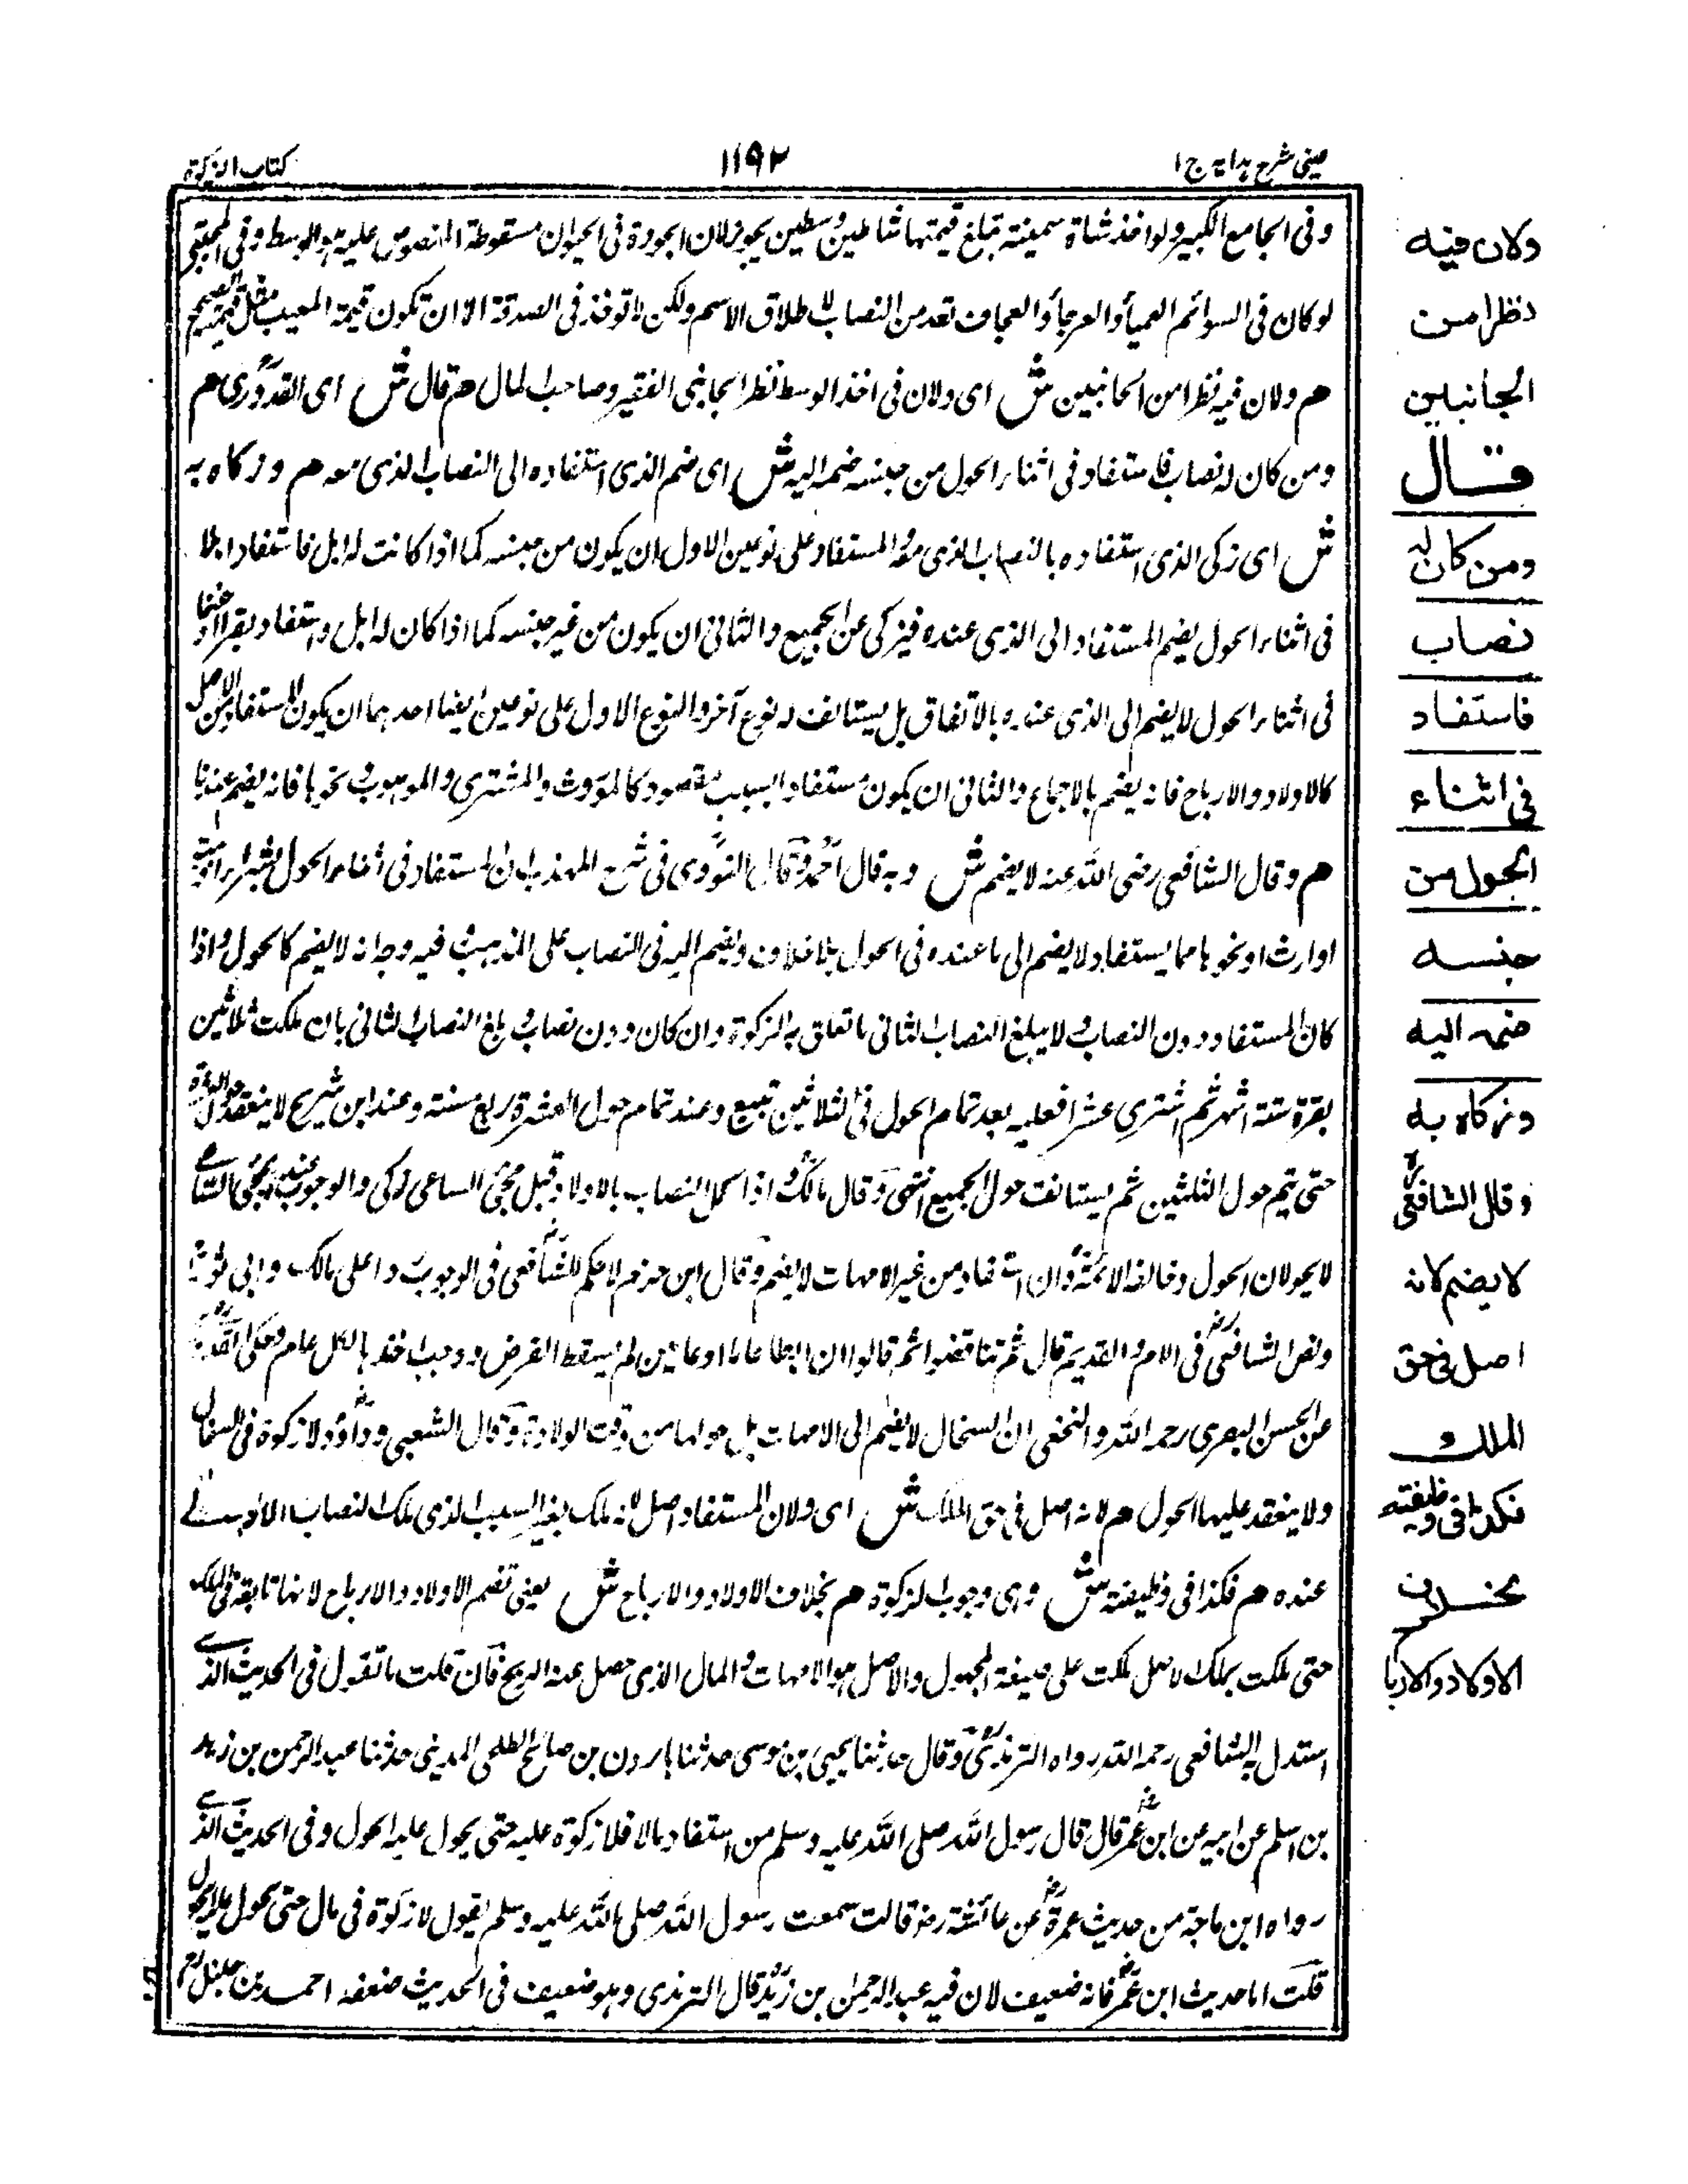 عینی شرح ہدایہ ج ۱
۱۱۹۲
کتاب الزکوة
وفی الجامع الکبیر ولو اخذ شاة سمینة تبلغ قیمتها شاتین وسطین یجوز لان الجودة فی الحیوان مسقوطة المنصوص علیه هو الوسط وفی المجتبی
لو کان فی السوائم العمیا والعرجا والعجاف تعد من النصاب لاطلاق الاسم ولکن لا تؤخذ فی الصدقة الا ان تکون قیمة المعیب مثل قیمة الصحیح
هم ولان فیه نظرا من الجانبین ش ای ولان فی اخذ الوسط نظرا لجانبی الفقیر وصاحب المال هم قال ش ای القدوری هم
ومن کان له نصاب فاستفاد فی اثناء الحول من جنسه ضمه الیه ش ای ضم الذی استفاده الی النصاب الذی معه هم وزکاه به
ش ای زکی الذی استفاده بالنصاب الذی معه المستفاد علی نوعین الاول ان یکون من جنسه کما اذا کانت له ابل فاستفاد ابلا
فی اثناء الحول یضم المستفاد الی الذی عنده فیزکی عن الجمیع والثانی ان یکون من غیر جنسه کما اذا کان له ابل واستفاد بقرا او غنما
فی اثناء الحول لا یضم الی الذی عنده بالاتفاق بل یستانف له نوع آخر والنوع الاول علی نوعین ایضا احدهما ان یکون المستفاد من الاصل
کالاولاد والارباح فانه یضم بالاجماع والثانی ان یکون مستفادا بسبب مقصود کالموروث والمشتری والموهوب ونحوها فانه یضم عندنا
هم وقال الشافعی رضی الله عنه لا یضم ش وبه قال احمد وقال النووی فی شرح المهذب ان المستفاد فی اثناء الحول بشراء او هبة
او ارث او نحوها مما یستفاد لا یضم الی ما عنده فی الحول بلا خلاف ویضم الیه فی النصاب علی المذهب وفیه وجه انه لا یضم کالحول واذا
کان المستفاد دون النصاب ولا یبلغ النصاب الثانی ما تعلق به الزکوة وان کان دون نصاب وبلغ النصاب الثانی بان ملکت ثلاثین
بقرة ستة اشهر ثم اشتری عشرا فعلیه بعد تمام الحول فی الثلاثین تبیع وعند تمام حول العشرة ربع مسنة وعند ابن شریح لا ینعقد حول
حتی یتم حول الثلثین ثم یستانف حول الجمیع انتهی وقال مالک اذا کمل النصاب بالاولاد قبل مجئ الساعی زکی والوجوب عنده بمجئ الساعی
لا بحولان الحول وخالف الائمة وان استفاد من غیر الامهات لا یضم وقال ابن حزم لا حکم للشافعی فی الوجوب
ونص الشافعی فی الام والقدیم قال ثم تناقضوا ثم قالوا ان ابطا عاما او عامین لم یسقط الفرض ووجب اخذها لکل عام وحکی
عن الحسن البصری رحمه الله والنخعی ان السخال لا یضم الی الامهات بل حولها من وقت الولادة وقال الشعبی وداؤد لا زکوة فی السخال
ولا ینعقد علیها الحول هم لانه اصل فی حق الملک ش ای ولان المستفاد اصل لانه ملک بغیر السبب الذی ملک النصاب
عنده هم فکذا فی وظیفته ش وهی وجوب الزکوة هم بخلاف الاولاد والارباح ش یعنی تضم الاولاد والارباح لانها تابعة فی الملک
حتی ملکت بملک الاصل ملکت علی صیغة المجهول والاصل هو الامهات والمال الذی حصل عنه الربح فان قلت ما تقول فی الحدیث الذی
استدل به الشافعی رحمه الله رواه الترمذی وقال حدثنا یحیی بن موسی حدثنا هارون بن صالح الطلحی المدینی حدثنا عبد الرحمن بن زید
بن اسلم عن ابیه عن ابن عمر قال قال رسول الله صلی الله علیه وسلم من استفاد مالا فلا زکوة علیه حتی یحول علیه الحول وفی الحدیث الذی
رواه ابن ماجة من حدیث عمرة عن عائشة رضـ قالت سمعت رسول الله صلی الله علیه وسلم یقول لا زکوة فی مال حتی یحول علیه الحول
قلت اما حدیث ابن عمر فانه ضعیف لان فیه عبد الرحمن بن زید قال الترمذی وهو ضعیف فی الحدیث ضعفه احمد بن حنبل
ولان فیه
نظرا من
الجانبین
قال
ومن کان له
نصاب
فاستفاد
فی اثناء
الحول من
جنسه
ضمه الیه
وزکاه به
وقال الشافعی
لا یضم لانه
اصل فی حق
الملک و
فکذا فی وظیفته
بخلاف
الاولاد والاربا